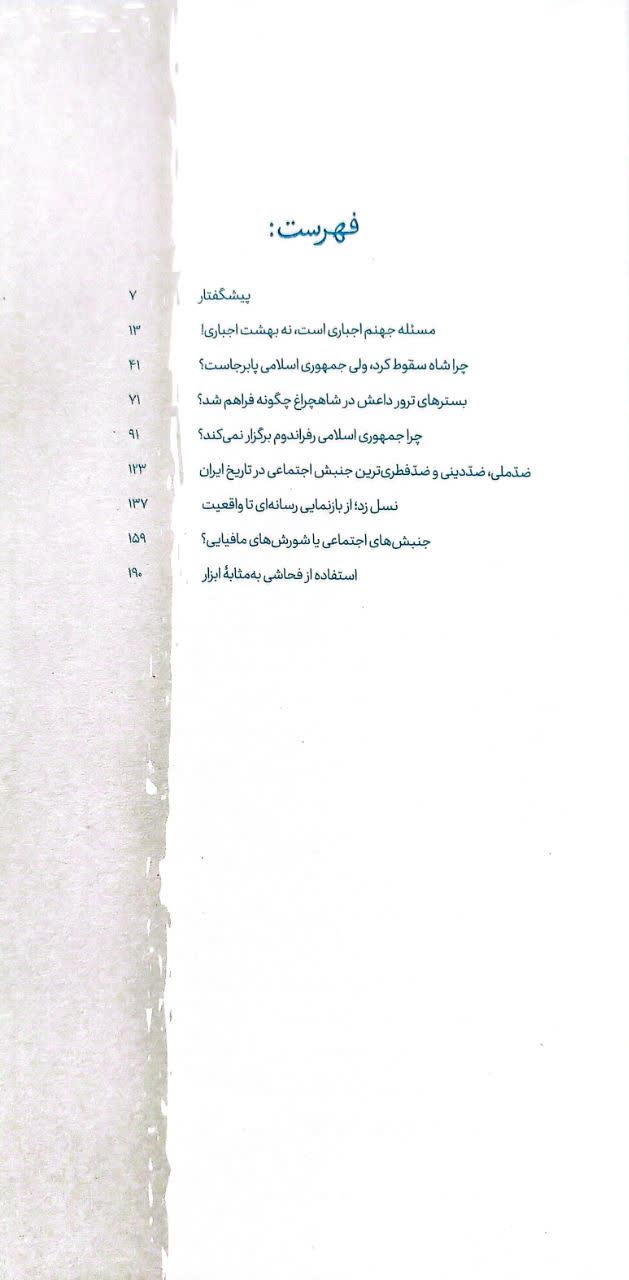 فهرست:
پیشگفتار ۷
مسئله جهنم اجباری است، نه بهشت اجباری! ۱۳
چرا شاه سقوط کرد، ولی جمهوری اسلامی پابرجاست؟ ۴۱
بسترهای ترور داعش در شاهچراغ چگونه فراهم شد؟ ۷۱
چرا جمهوری اسلامی رفراندوم برگزار نمی‌کند؟ ۹۱
ضدّملی، ضدّدینی و ضدّفطری‌ترین جنبش اجتماعی در تاریخ ایران ۱۲۳
نسل زد؛ از بازنمایی رسانه‌ای تا واقعیت ۱۳۷
جنبش‌های اجتماعی یا شورش‌های مافیایی؟ ۱۵۹
استفاده از فحاشی به‌مثابهٔ ابزار ۱۹۰